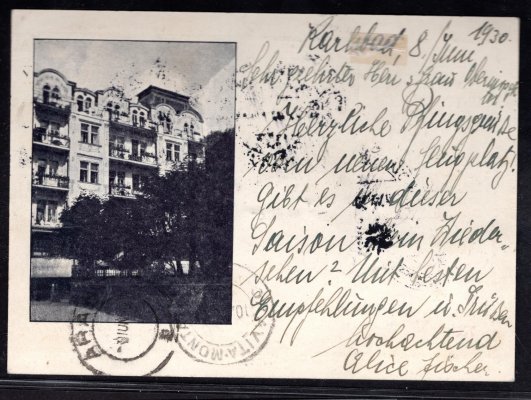 Karlsbad, 8. Juni 1930.
Sehr geehrter Herr u. Frau
Herzliche Pfingstgrüsse
vom neuen Flugplatz.
Gibt es in dieser
Saison ein Wieder-
sehen? Mit besten
Empfehlungen u. Grüssen
hochachtend
Alice Fischer.